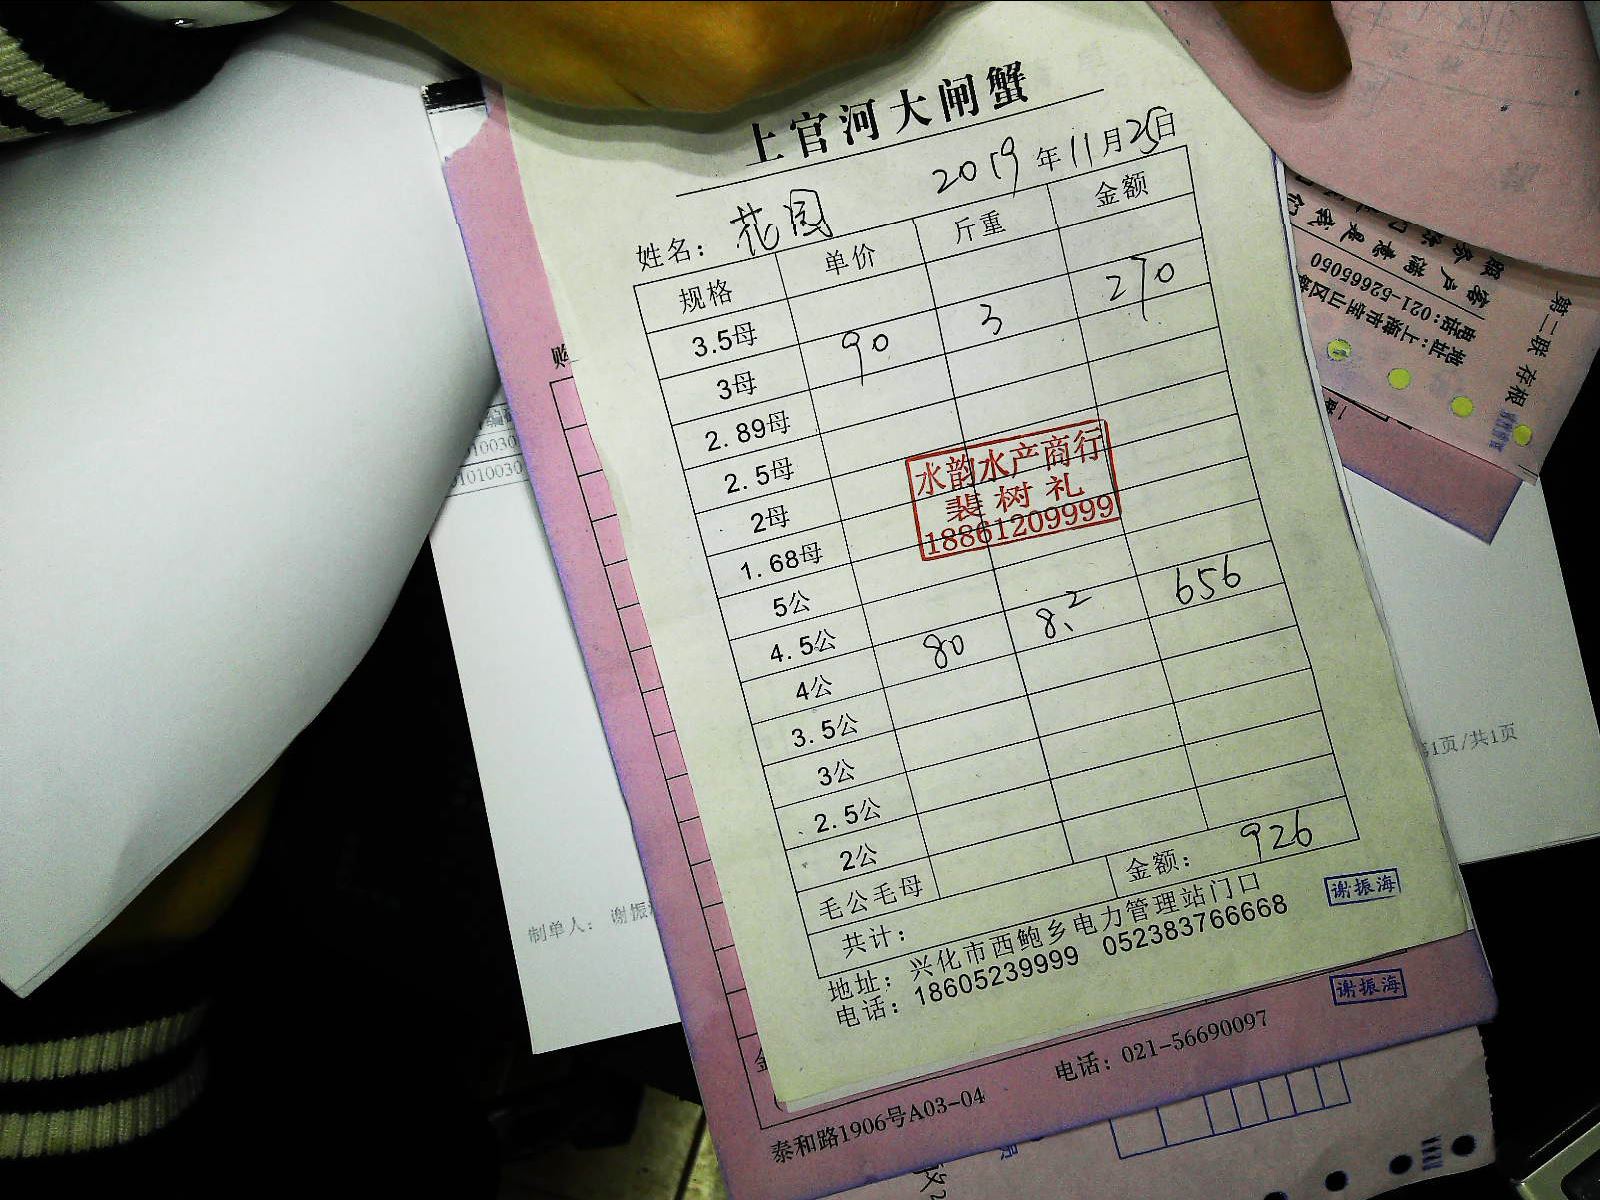 上官河大闸蟹
2019年11月25日
姓名：花园
规格 单价 斤重 金额
3.5母
3母 90 3 270
2.89母
2.5母
2母
1.68母
5公
4.5公
4公 80 8.2 656
3.5公
3公
2.5公
2公
毛公毛母
共计： 金额： 926
地址：兴化市西鲍乡电力管理站门口
电话：18605239999 052383766668
水韵水产商行
裴树礼
18861209999
谢振海
谢振海
泰和路1906号A03-04 电话：021-56690097
制单人： 谢振
第1页/共1页
第二联 存根
电话：021-52665050
地址：上海市宝山区
客户满意是我们
01010030